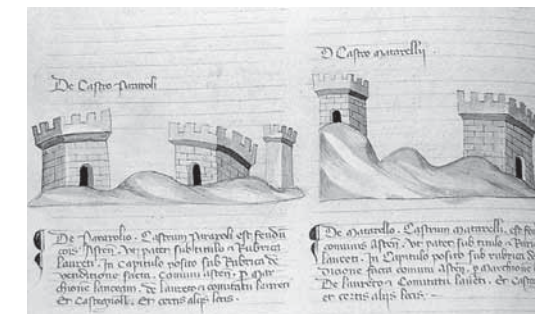 De Castro Pararoli
De Pararolio. Castrum Pararoli est feudu
cois Asten. Vt patet sub titulo & Rubrica
Laureti. In Capitulo posito sub Rubrica de
venditione facta. Comuni asten. p Mar
chione lanceam. de laureto & comitatu laureti
Et Castagnoli. Et certis alijs locis.
D Castro Matarelli
De Matarello. Castrum Matarelli. est feu
comunis Asten. Vt patet sub titulo & Rub
Laureti. In Capitulo posito sub rubrica de
dicione facta comuni asten. p Marchione
De laureto & Comitatu laureti. Et Castag
et certis alijs locis.